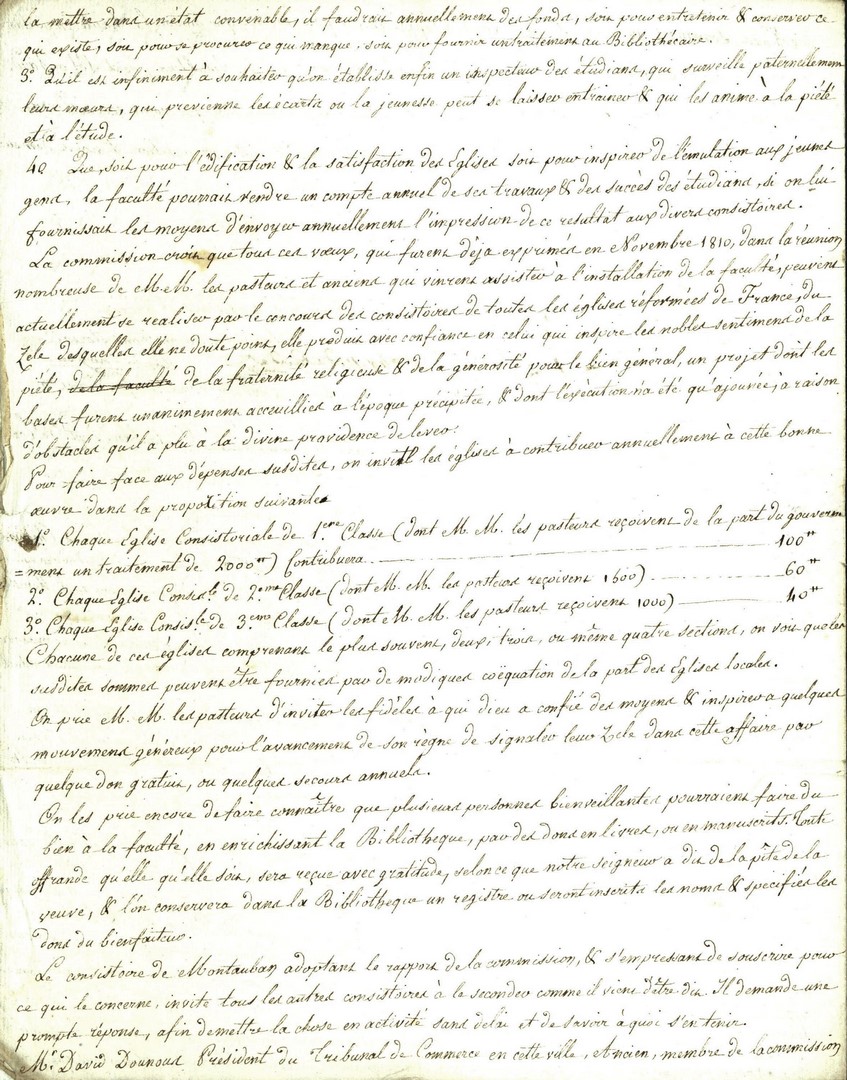 la mettre dans un état convenable, il faudrait annuellement des fonds, soit pour entretenir & conserver ce
qui existe, soit pour se procurer ce qui manque, soit pour fournir un traitement au Bibliothécaire.
3.° Qu'il est infiniment à souhaiter qu'on établisse enfin un inspecteur des étudians, qui surveille paternellemen
leurs mœurs, qui previenne les écarts ou la jeunesse peut se laisser entrainer & qui les anime à la piété
et à l'étude.
4° Que, soit pour l'édification & la satisfaction des Eglises soit pour inspirer de l'émulation aux jeunes
gens, la faculté pourrait rendre un compte annuel de ses travaux & des succès des étudians, si on lui
fournissait les moyens d'envoyer annuellement l'impression de ce resultat aux divers consistoires.
La commission croit que tous ces vœux, qui furent déja exprimés en Novembre 1810, dans la réunion
nombreuse de M.M. les pasteurs et anciens qui vinrent assister à l'installation de la faculté, peuvent
actuellement se realiser par le concours des consistoires de toutes les églises réformées de France, du
Zele desquelles elle ne doute point, elle produit avec confiance en celui qui inspire les nobles sentimens de la
piété, de la faculté de la fraternité religieuse & de la générosité pour le bien général, un projet dont les
bases furent unanimement acceuillies à l'époque précipitée, & dont l'execution n'a été qu'ajournée, à raison
d'obstacles qu'il a plu à la divine providence de lever.
Pour faire face aux dépenses susdites, on invite les églises à contribuer annuellement à cette bonne
œuvre dans la propotition suivante
1.° Chaque Eglise Consistoriale de 1.ere Classe (dont M. M. les pasteurs reçoivent de la part du gouverne
=ment un traitement de 2000tt) Contribuera 100tt
2.° Chaque Eglise Consis.le de 2.eme Classe (dont M. M. les pasteurs reçoivent 1500) 60tt
3.° Chaque Eglise Consis.le de 3.eme Classe (dont M. M. les pasteurs reçoivent 1000) 40tt
Chacune de ces églises comprenant le plus souvent, deux, trois, ou même quatre sections, on voit que les
susdites sommes peuvent être fournies par de modiques coëquation de la part des Eglises locales.
On prie M. M. les pasteurs d'inviter les fidéles à qui dieu a confié des moyens & inspirer a quelques
mouvemens généreux pour l'avancement de son règne de signaler leur Zele dans cette affaire par
quelque don gratuit, ou quelques secours annuels.
On les prie encore de faire connaître que plusieurs personnes bienveillantes pourraient faire du
bien à la faculté, en enrichissant la Bibliotheque, par des dons en livres, ou en manuscrits. Toute
offrande qu'elle qu'elle soit, sera reçue avec gratitude, selon ce que notre seigneur a dit de la pite de la
veuve, & l'on conservera dans la Bibliotheque un registre ou seront inscrits les noms & spécifiés les
dons du bienfaiteur.
Le consistoire de Montauban adoptant le rapport de la commission, & s'empressant de souscrire pour
ce qui le concerne, invite tous les autres consistoires à le seconder comme il vient d'être dit. Il demande une
prompte réponse, afin de mettre la chose en activité sans delai et de savoir à quoi s'en tenir.
M.r David Dounous Président du Tribunal de Commerce en cette ville, Ancien, membre de la commission